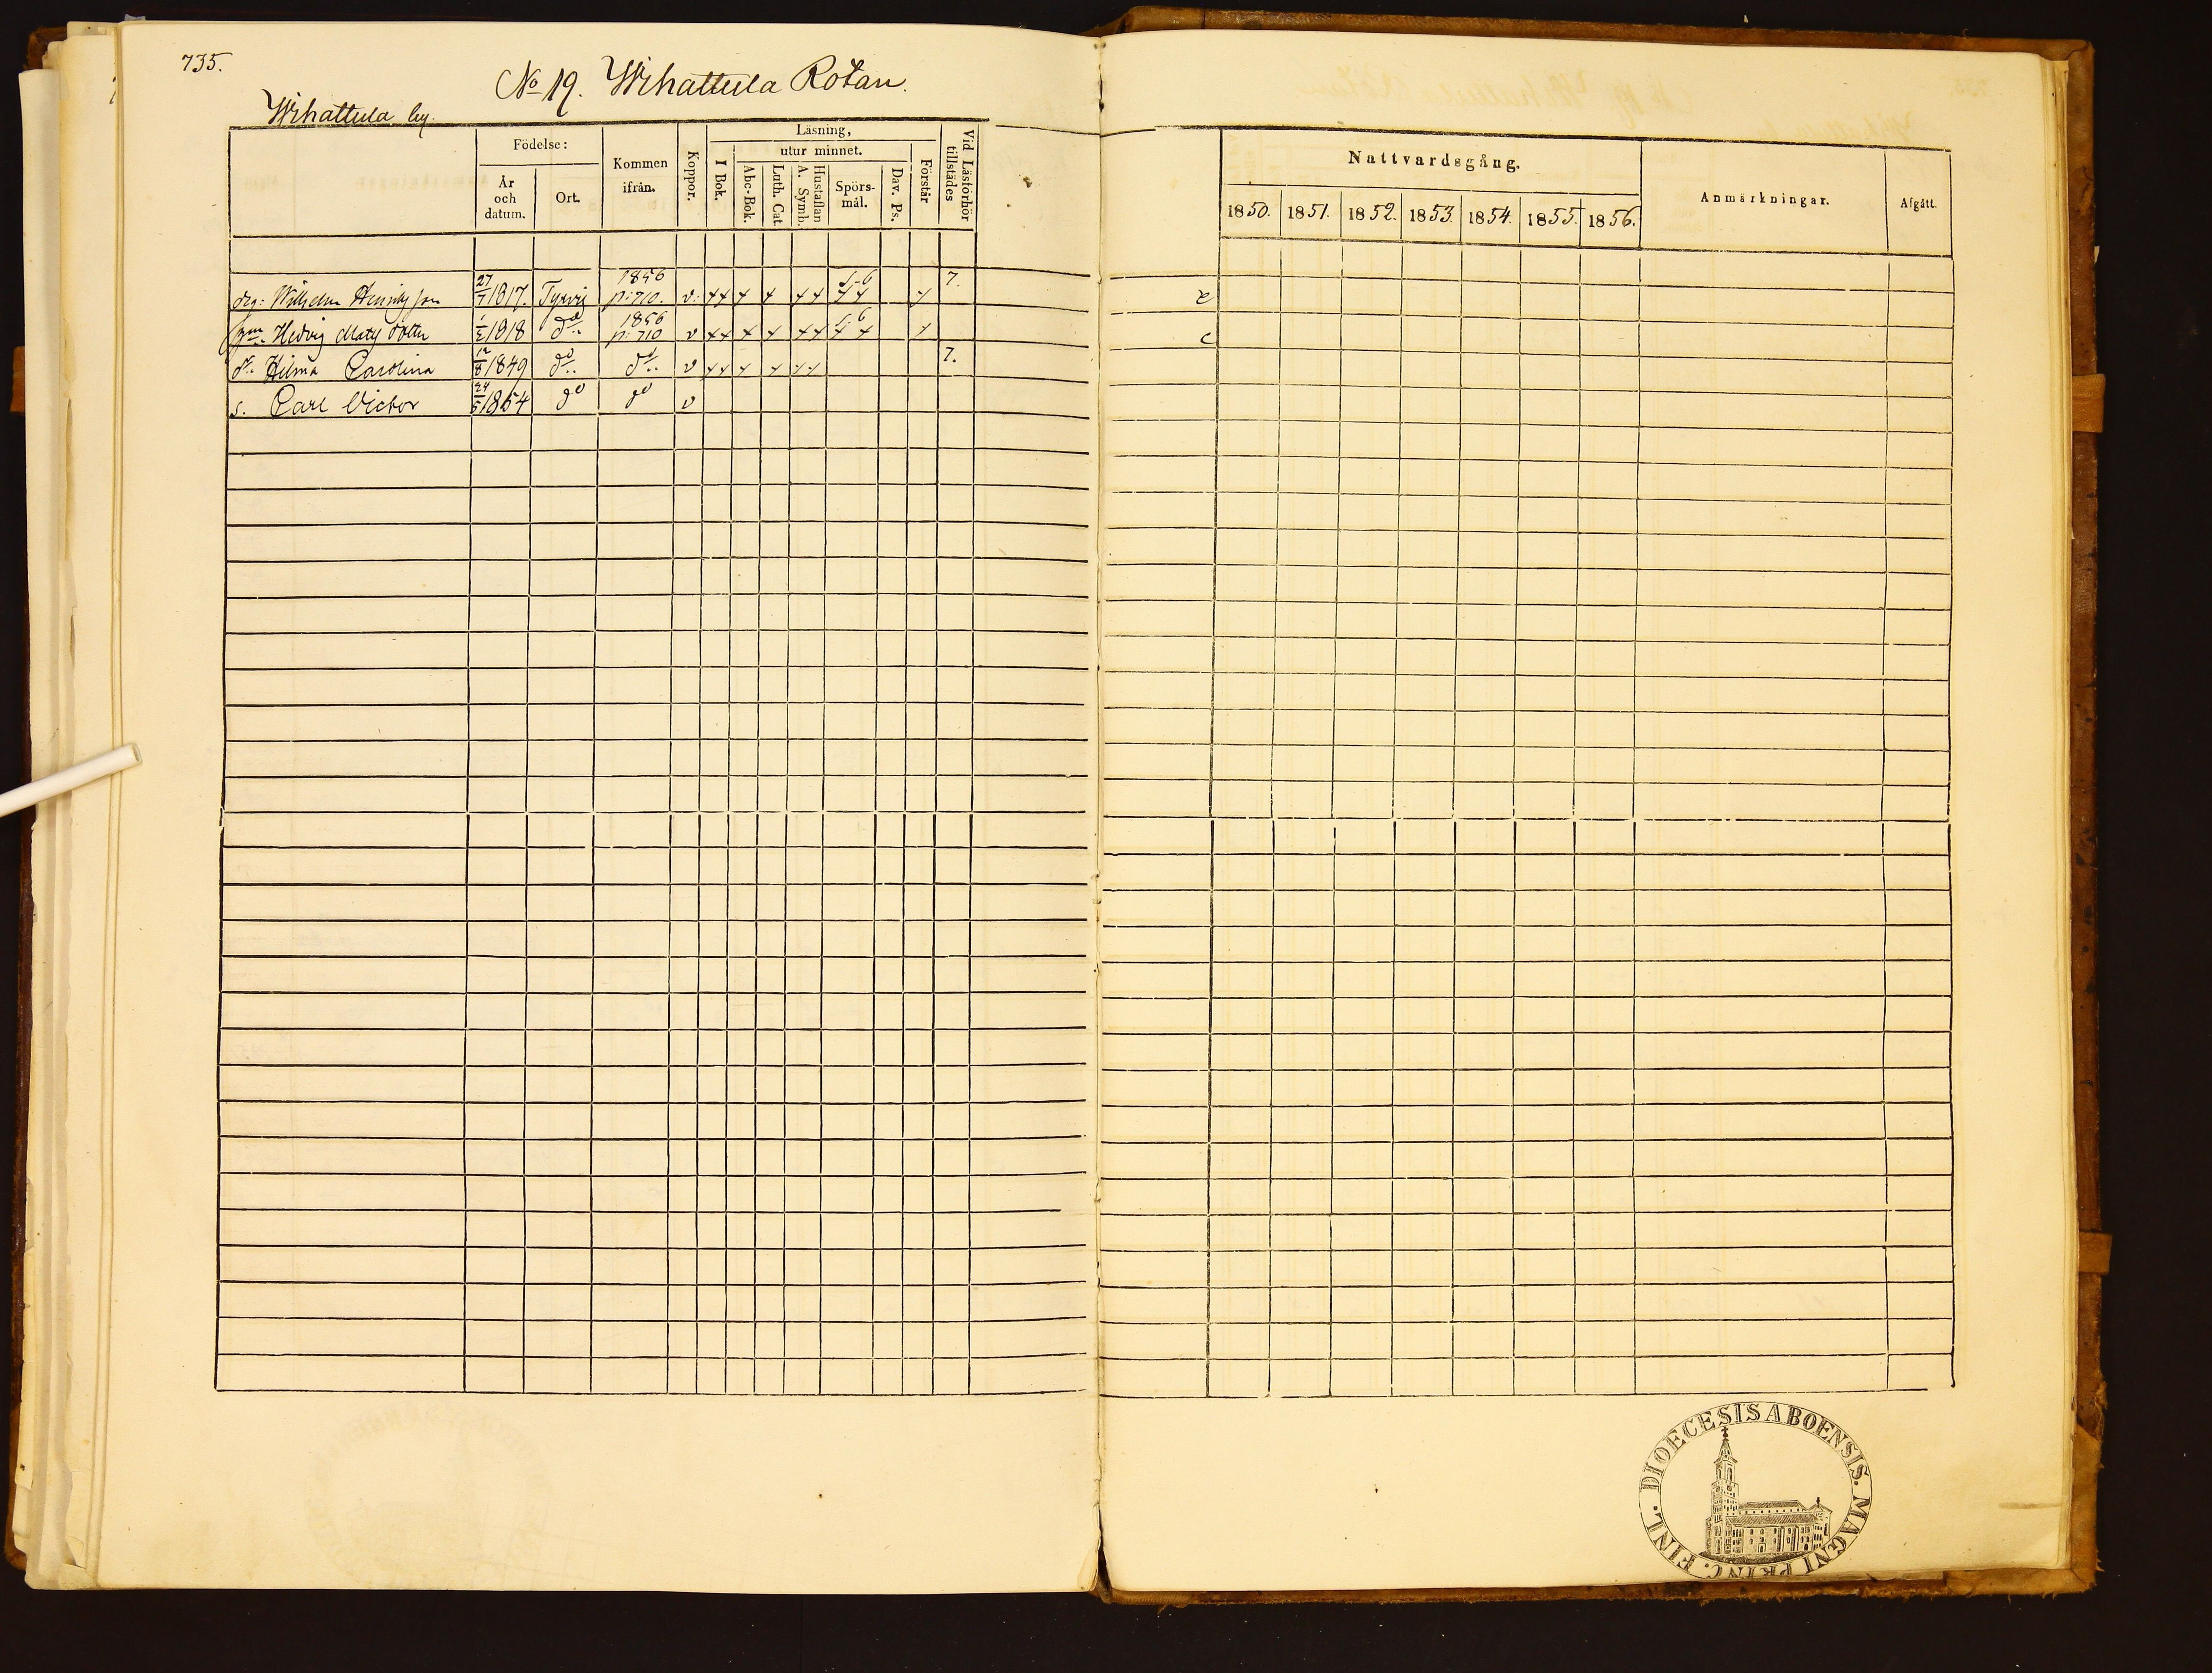 735.
No 19. Wihattula Rotan.
Wihattula by.
Födelse:
År och datum.
Ort.
Kommen ifrån.
Koppor.
Läsning,
I Bok.
utur minnet.
Abc-Bok.
Luth. Cat.
Hustaflan A. Symb.
Spörs-mål.
Dav. Ps.
Förstår
Vid Läsförhör tillstädes
Nattvardsgång.
1850. 1851. 1852. 1853. 1854. 1855. 1856.
Anmärkningar.
Afgått.
Wilhelm Henriksson 27/7 1817. Tyrvis 1856 p: 710. v: 7.
Hedvig Mats dotter 1/2 1818 do 1856 p: 710 v c
dr. Hilma Carolina 12/8 1849 do do v 7.
s. Carl Victor 24/5 1854 do do v
DIOECESIS ABOENSIS. MAGNI PRINC. FINL.